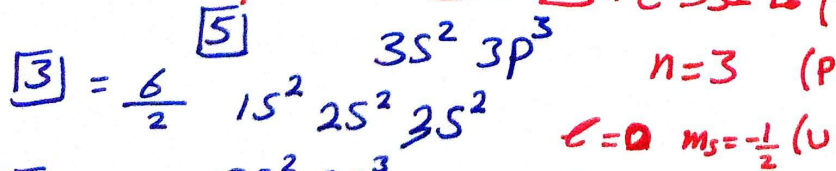 5 3s² 3p³
3 = 6/2 1s² 2s² 3s²
n=3 (P
ℓ=0 ms=-1/2 (U